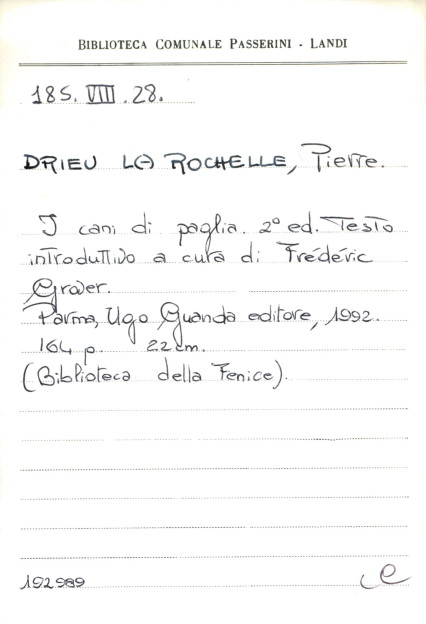 BIBLIOTECA COMUNALE PASSERINI - LANDI
185. VIII .28.
DRIEU LA ROCHELLE, Pierre.
I cani di paglia. 2° ed. Testo
introduttivo a cura di Frédéric
Grover.
Parma, Ugo Guanda editore, 1992.
164 p. 22 cm.
(Biblioteca della Fenice).
192989